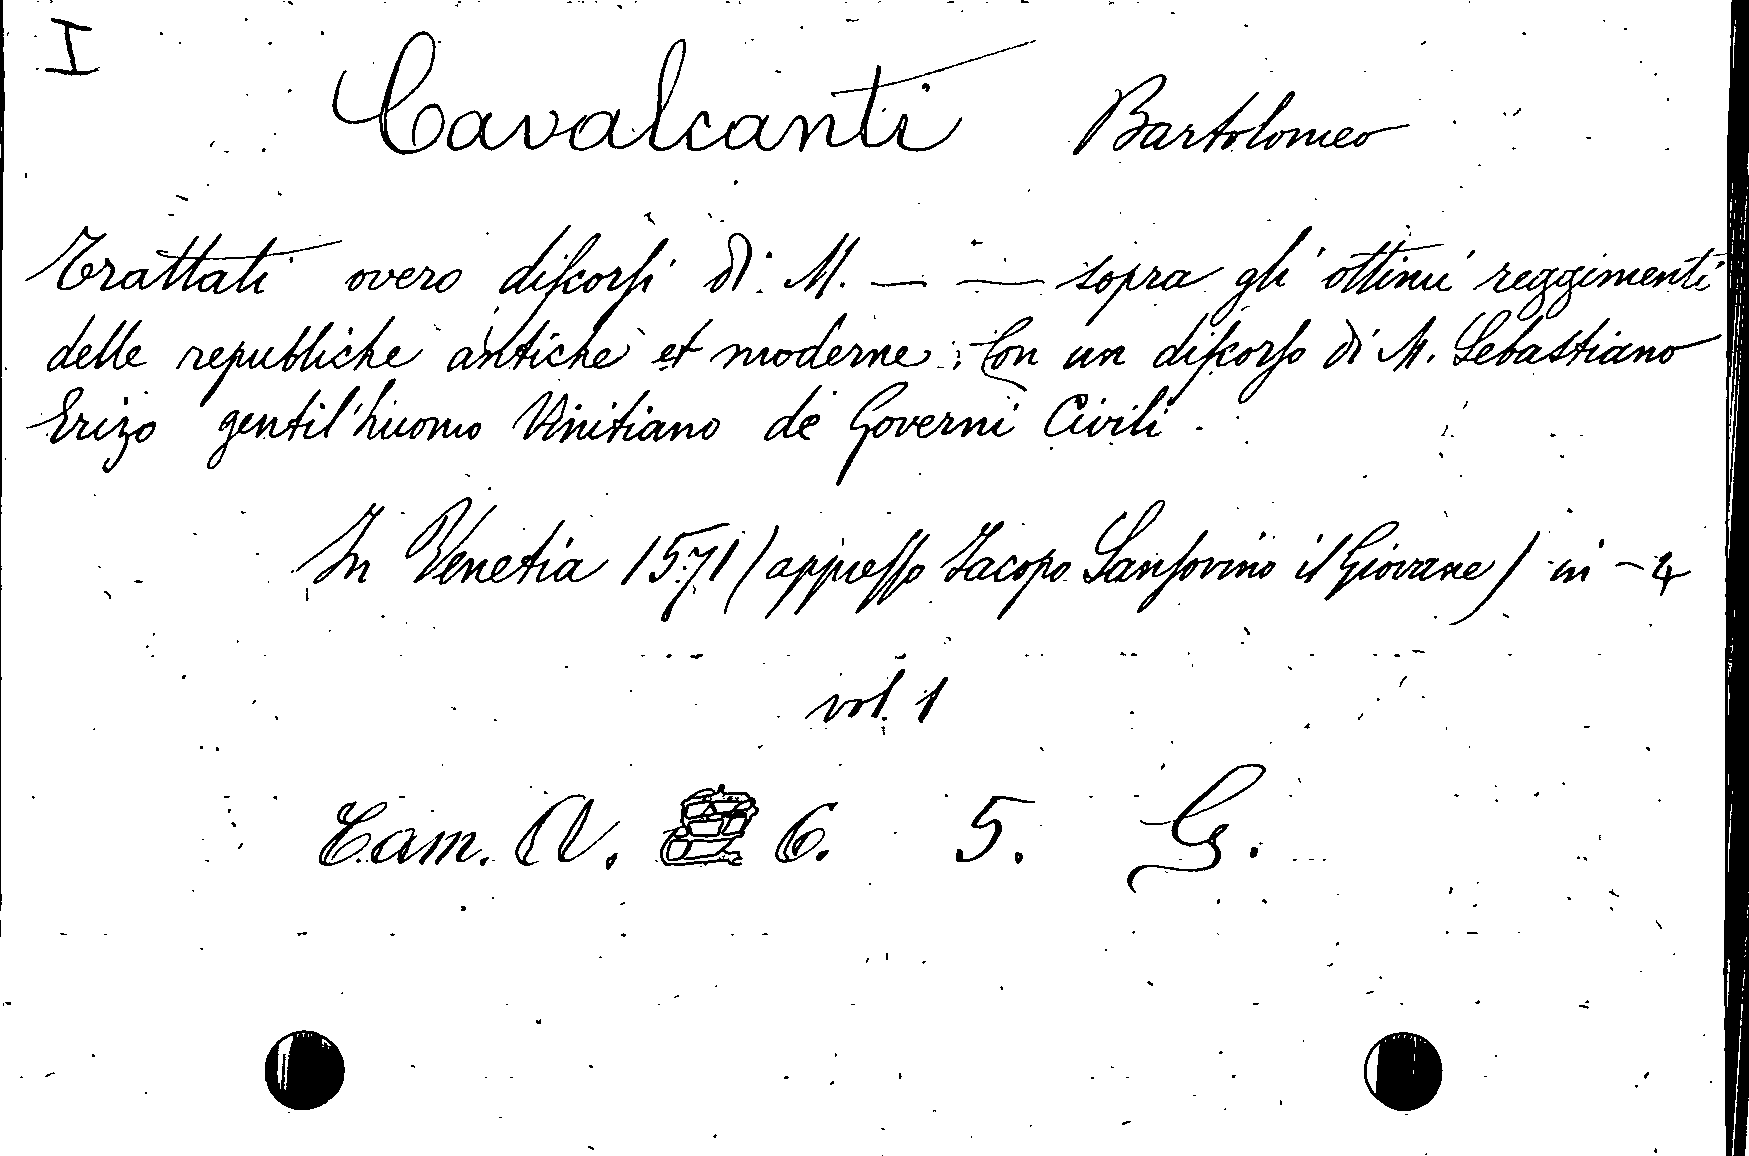 I
Cavalcanti Bartolomeo
Trattati overo diſcorſi di M. — — sopra gli ottimi reggimenti
delle republiche antiche et moderne. Con un diſcorſo di M. Sebastiano
Erizo gentil'huomo Vinitiano de Governi Civili.
In Venetia 1571 (appreſſo Iacopo Sanſovino il Giovane) in-4
vol. 1
Cam. N. 6. 5. G.